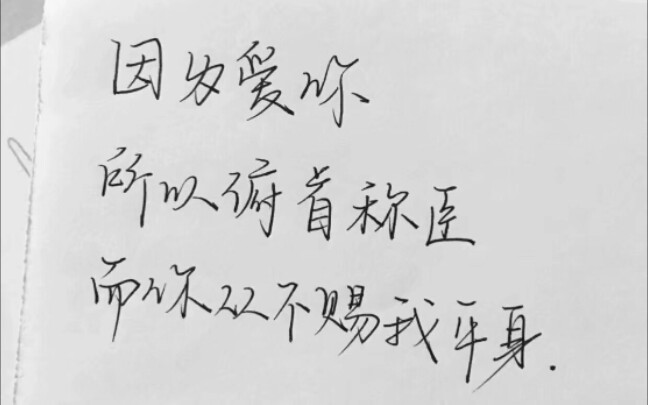 因为爱你
所以俯首称臣
而你从不赐我平身.